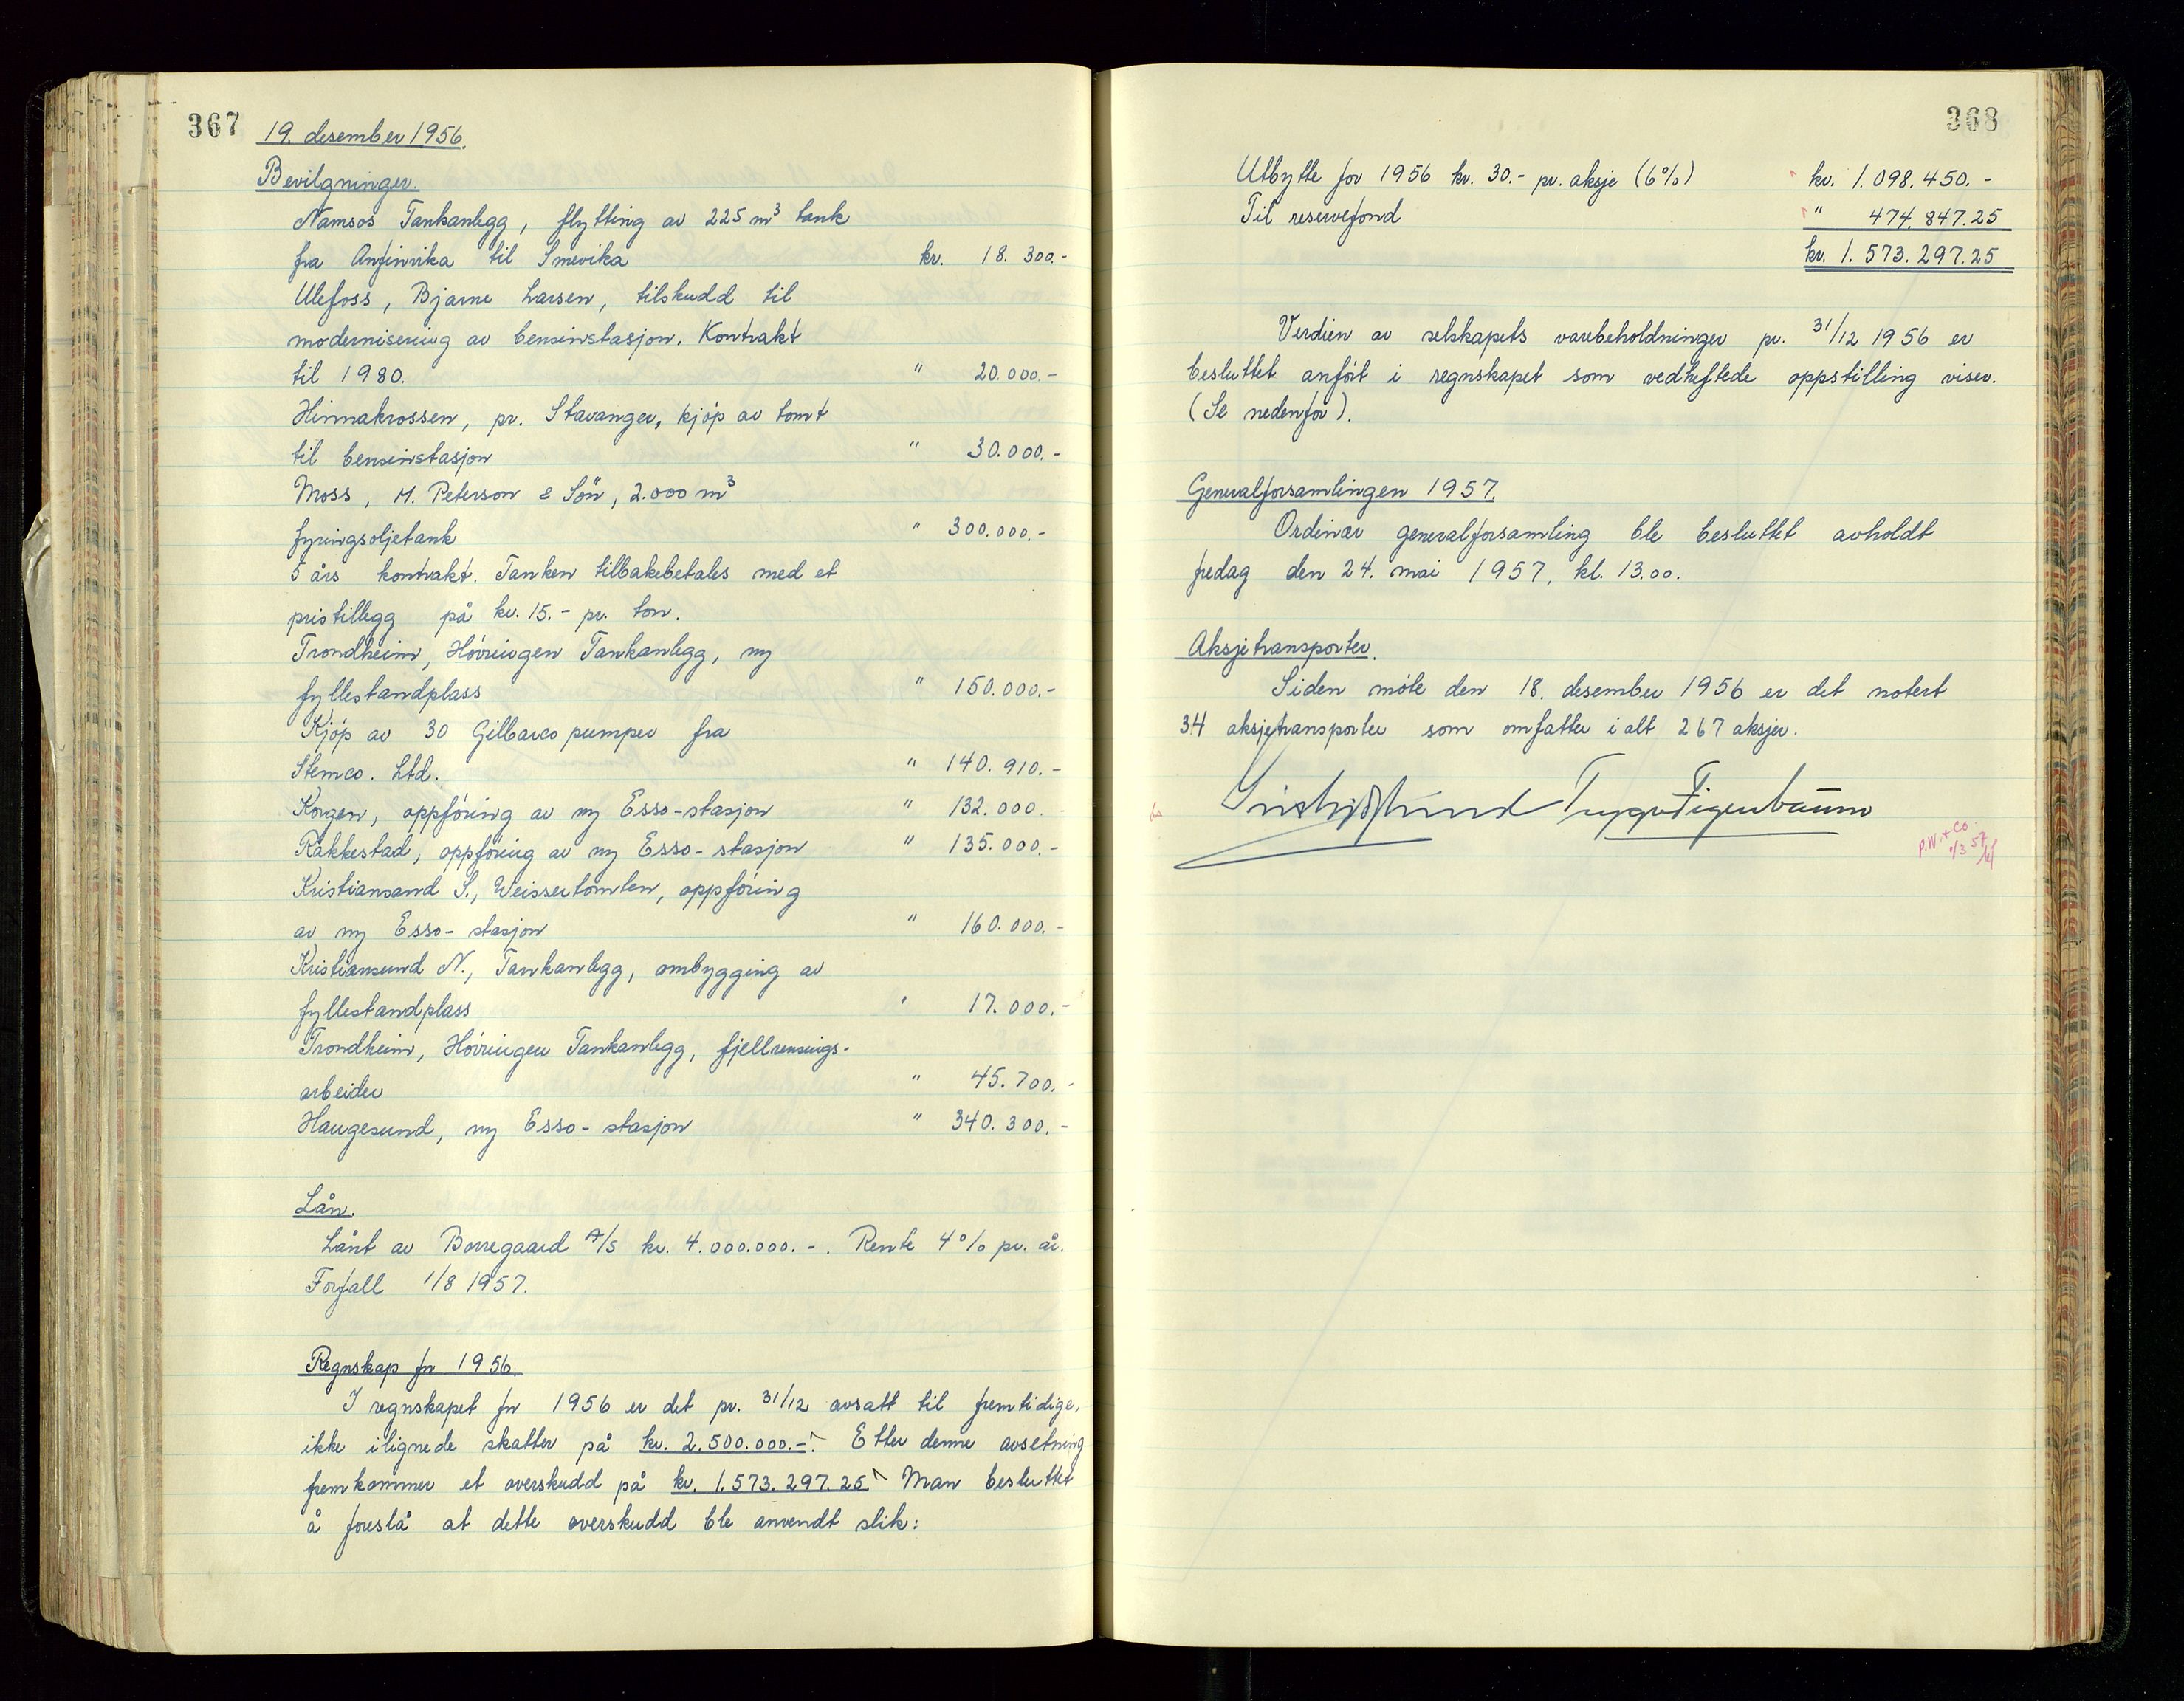 367
19. desember 1956.
Bevilgninger.
Namsos Tankanlegg, flytting av 225 m³ tank
fra Anfinvika til Smevika kr. 18.300.-
Ulefoss, Bjarne Larsen, tilskudd til
modernisering av bensinstasjon. Kontrakt
til 1980. " 20.000.-
Hinnakrossen, pr. Stavanger, kjöp av tomt
til bensinstasjon " 30.000.-
Moss, M. Peterson & Sön, 2.000 m³
fyringsoljetank " 300.000.-
5 års kontrakt. Tanken tilbakebetales med et
pristillegg på kr. 15.- pr. ton.
Trondheim, Hövringen Tankanlegg, ny
fyllestandplass " 150.000.-
Kjöp av 30 Gilbarco pumper fra
Stemco. Ltd. " 140.910.-
Korgen, oppföring av ny Esso-stasjon " 132.000.
Rakkestad, oppföring av ny Esso-stasjon " 135.000.-
Kristiansand S., Weissertomten, oppföring
av ny Esso-stasjon " 160.000.-
Kristiansund N., Tankanlegg, ombygging av
fyllestandplass " 17.000.-
Trondheim, Hövringen Tankanlegg, fjellrensnings-
arbeider " 45.700.-
Haugesund, ny Esso-stasjon " 340.300.-
Lån.
Lånt av Borregaard A/S kr. 4.000.000.-. Rente 4% pr. år.
Forfall 1/8 1957.
Regnskap for 1956.
I regnskapet for 1956 er det pr. 31/12 avsatt til fremtidige,
ikke ilignede skatter på kr. 2.500.000.-. Etter denne avsetning
fremkommer et overskudd på kr. 1.573.297.25. Man besluttet
å foreslå at dette overskudd ble anvendt slik:
368
Utbytte for 1956 kr. 30.- pr. aksje (6%) kr. 1.098.450.-
Til reservefond " 474.847.25
kr. 1.573.297.25
Verdien av selskapets varebeholdninger pr. 31/12 1956 er
besluttet anfört i regnskapet som vedheftede oppstilling viser.
(Se nedenfor).
Generalforsamlingen 1957.
Ordinær generalforsamling ble besluttet avholdt
fredag den 24. mai 1957, kl. 13.00.
Aksjetransporter.
Siden möte den 18. desember 1956 er det notert
34 aksjetransporter som omfatter i alt 267 aksjer.
P.W. & Co.